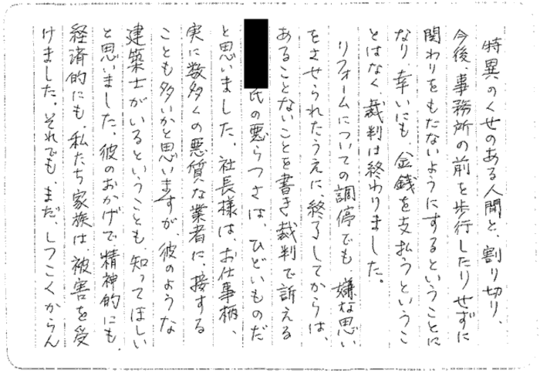 特異のくせのある人間と、割り切り、
今後、事務所の前を歩行したりせずに
関わりをもたないようにするということに
なり、幸いにも、金銭を支払うというこ
とはなく裁判は終わりました。
リフォームについての調停でも、嫌な思い
をさせられたうえに、終了してからは、
あることないことを書き、裁判で訴える
氏の悪らつさは、ひどいものだ
と思いました。社長様は、お仕事柄、
実に数多くの悪質な業者に、接する
ことも多いかと思いますが彼のような
建築士がいるということも、知ってほしい
と思いました。彼のおかげで精神的にも、
経済的にも、私たち家族は、被害を受
けました。それでも、まだ、しつこくからん